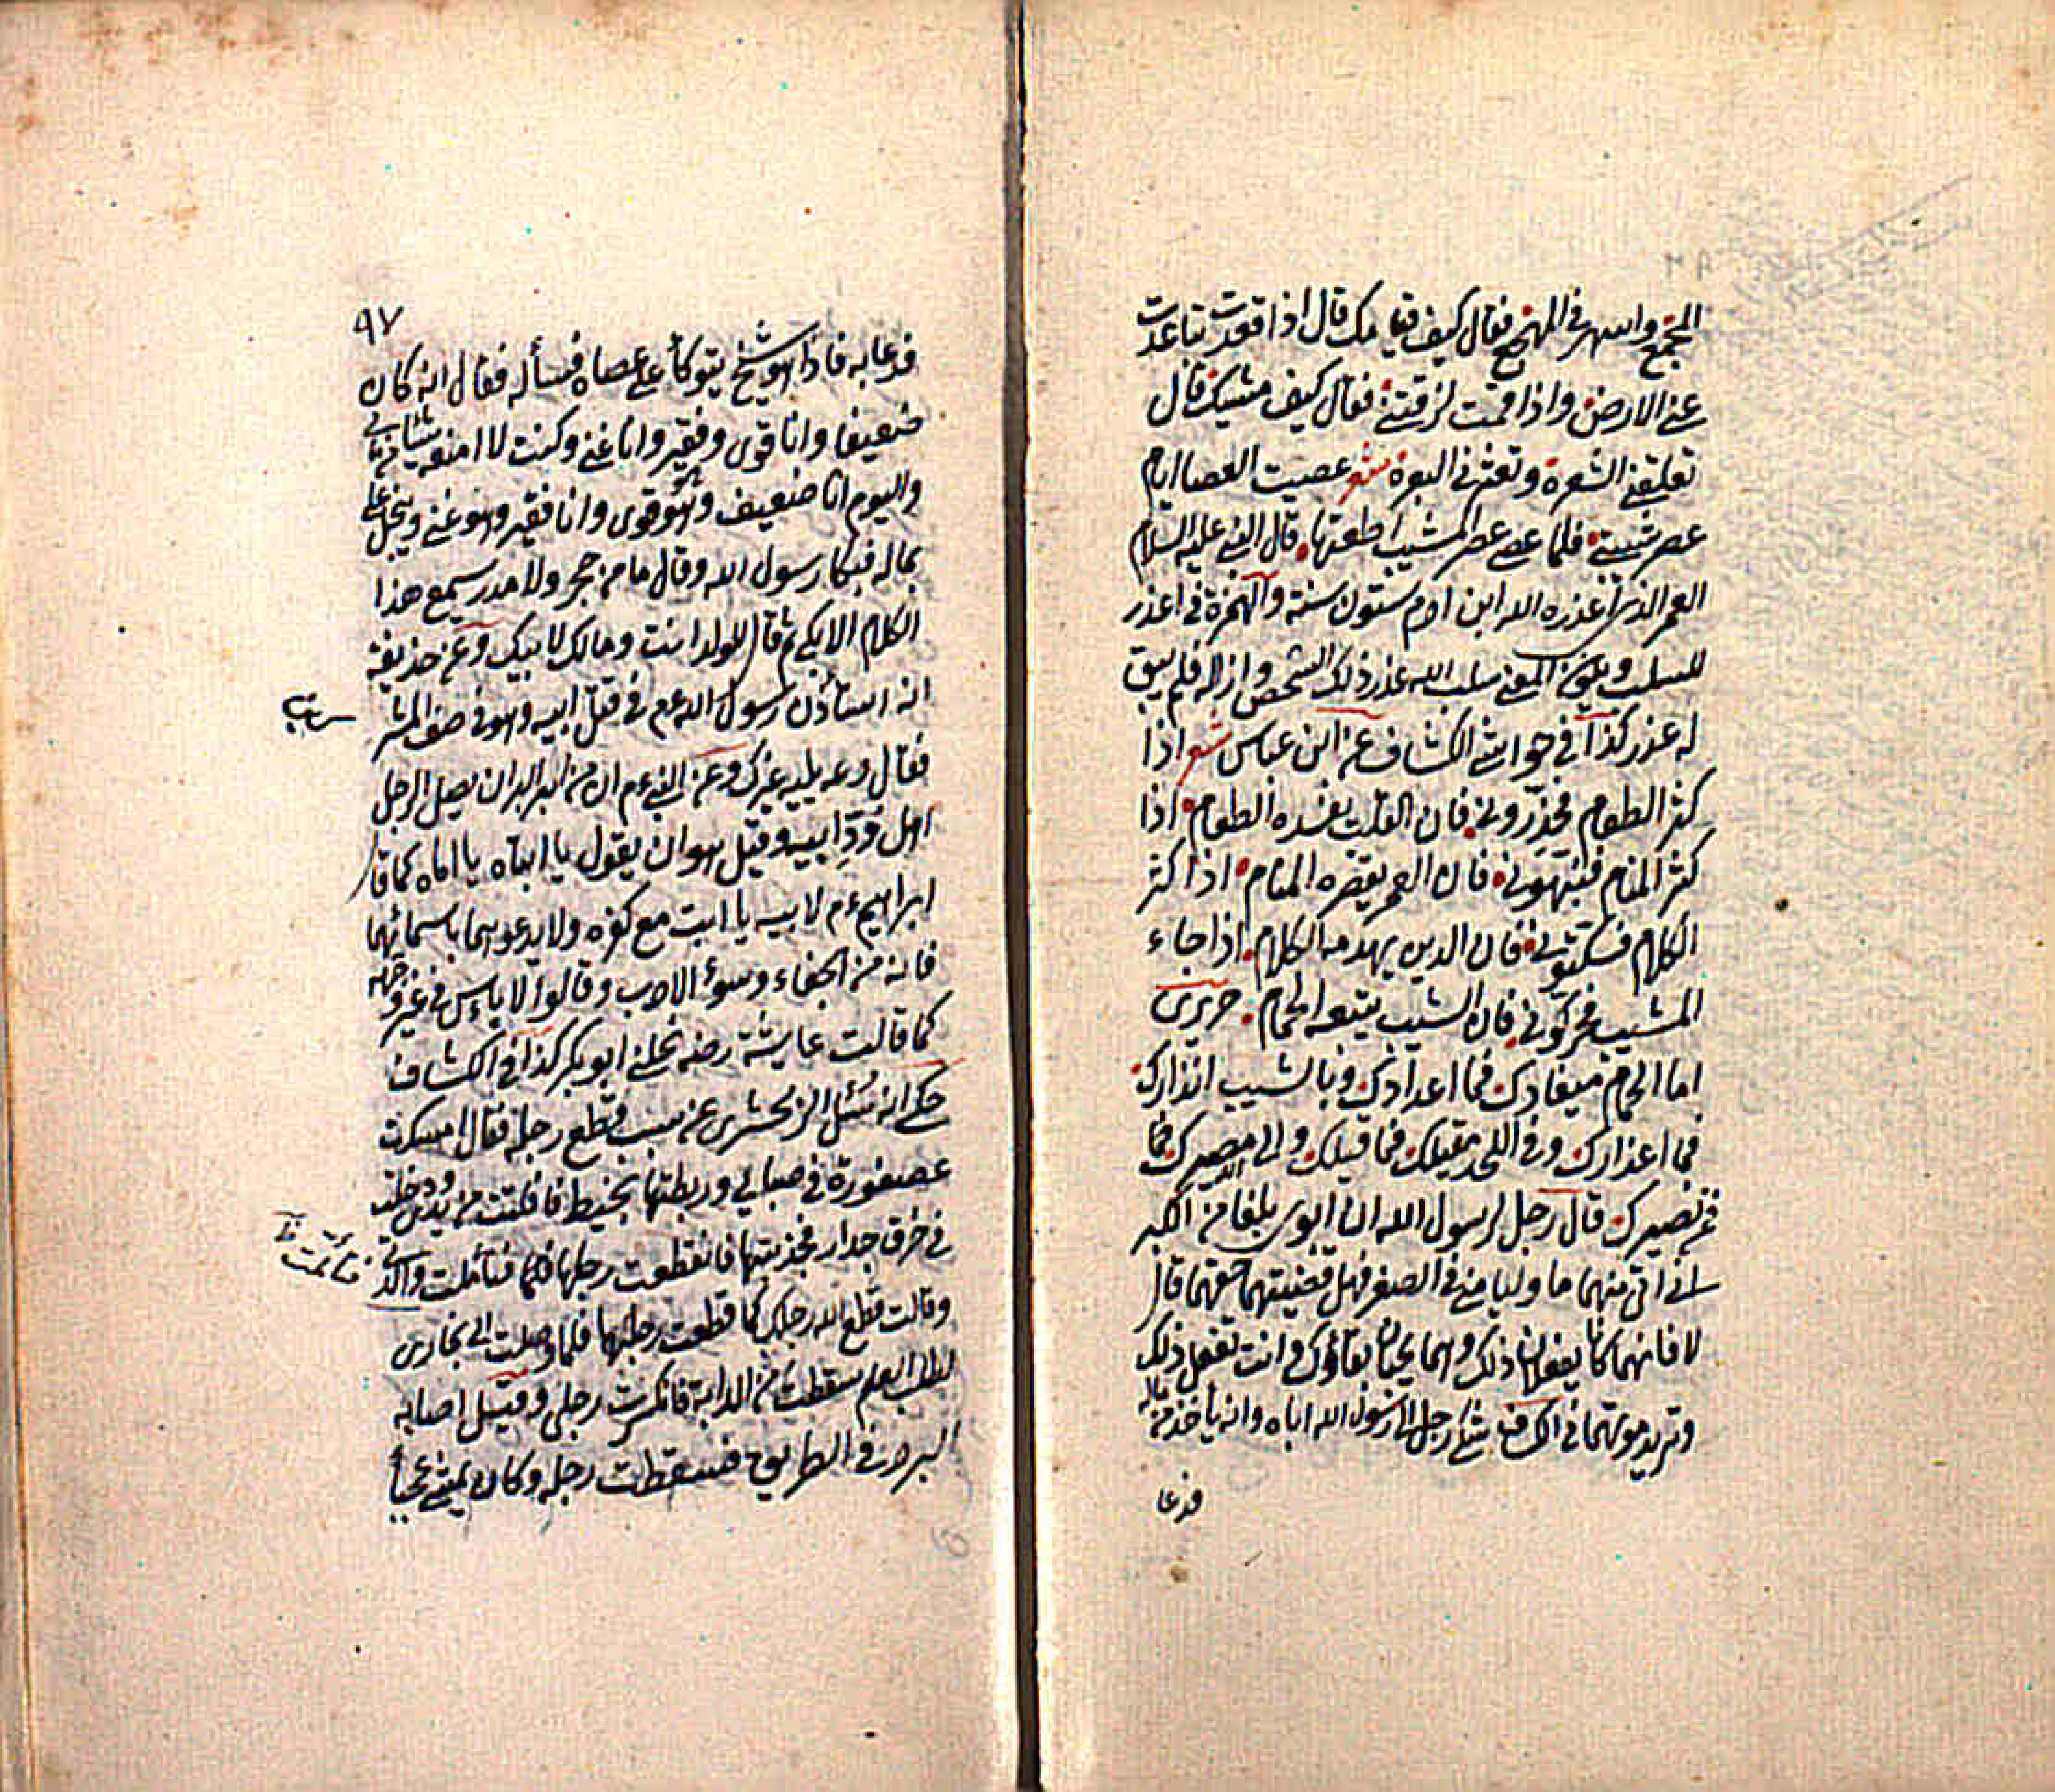 المجمع واسهر في المهجع فقال كيف قيامك قال اذا قعدت تباعدت
عني الارض واذا قمت لزقتني فقال كيف مشيك قال
تعلقني الشعرة وتعثرني البعرة شعر عصيت العصا ايام
عصر شبيبتي فلما عصر المشيب اطعتها قال النبي عليه السلام
العمر الذي اعذره الله ابن ادم ستون سنة والهمزة في اعذر
للسلب ويكون المعنى سلب الله عذر ذلك الشخص وازاله فلم يبق
له عذر كذا في حواشي الكشاف عن ابن عباس شعر اذا
كثر الطعام فحذروني فان القلب يفسده الطعام اذا
كثر المنام فنبهوني فان العمر ينقصه المنام اذا كثر
الكلام فسكتوني فان الدين يهدمه الكلام اذا جاء
المشيب فحركوني فان الشيب يتبعه الحمام حريري
اما الحمام ميعادك فما اعدادك وبالشيب انذارك
فما اعذارك وفي اللحد مقيلك فما قيلك والى الله مصيرك فما
فمن نصيرك قال رجل لرسول الله ان ابوي بلغا من الكبر
اني الي منهما ما وليا مني في الصغر فهل قضيتهما حقهما قال
لا فانهما كانا يفعلان ذلك وهما يحبان بقاؤك وانت تفعل ذلك
وتريد موتهما في الكشاف شكى رجل الى رسول الله اباه وانه يأخذ من ماله
فدعا
٩٧
فدعا به فاذا هو شيخ يتوكأ على عصاه فسأله فقال انه كان
ضعيفا وانا قوي وفقير وانا غني وكنت لا امنعه شيئا من مالي
واليوم انا ضعيف وهو قوي وانا فقير وهو غني ويبخل علي
بماله فبكا رسول الله وقال ما من حجر ولا مدر سمع هذا
الكلام الا بكى ثم قال للولد انت ومالك لابيك وعن حذيفة
انه استأذن رسول الله عم في قتل ابيه وهو في صف المشركين
فقال دعه يليه غيرك وعن النبي عم ان من ابر البر ان يصل الرجل
اهل ود ابيه وقيل هو ان يقول يا ابتاه يا اماه كما قال
ابراهيم عم لابيه يا ابت مع كفره ولا يدعوهما باسمائهما
فانه من الجفاء وسوء الادب وقالوا لا بأس في غير وجهه
كما قالت عايشة رضه نحلني ابو بكر كذا في الكشاف
حكي انه سئل الزمخشري عن سبب قطع رجله فقال امسكت
عصفورة في صباي وربطتها بخيط فافلتت من يدي ودخلت
في خرق جدار فجذبتها فانقطعت رجلها فتألمت والدتي
وقالت قطع الله رجلك كما قطعت رجلها فلما وصلت الى بخارى
لطلب العلم سقطت من الدابة فانكسرت رجلي وقيل اصابه
البرد في الطريق فسقطت رجله وكان يمشي